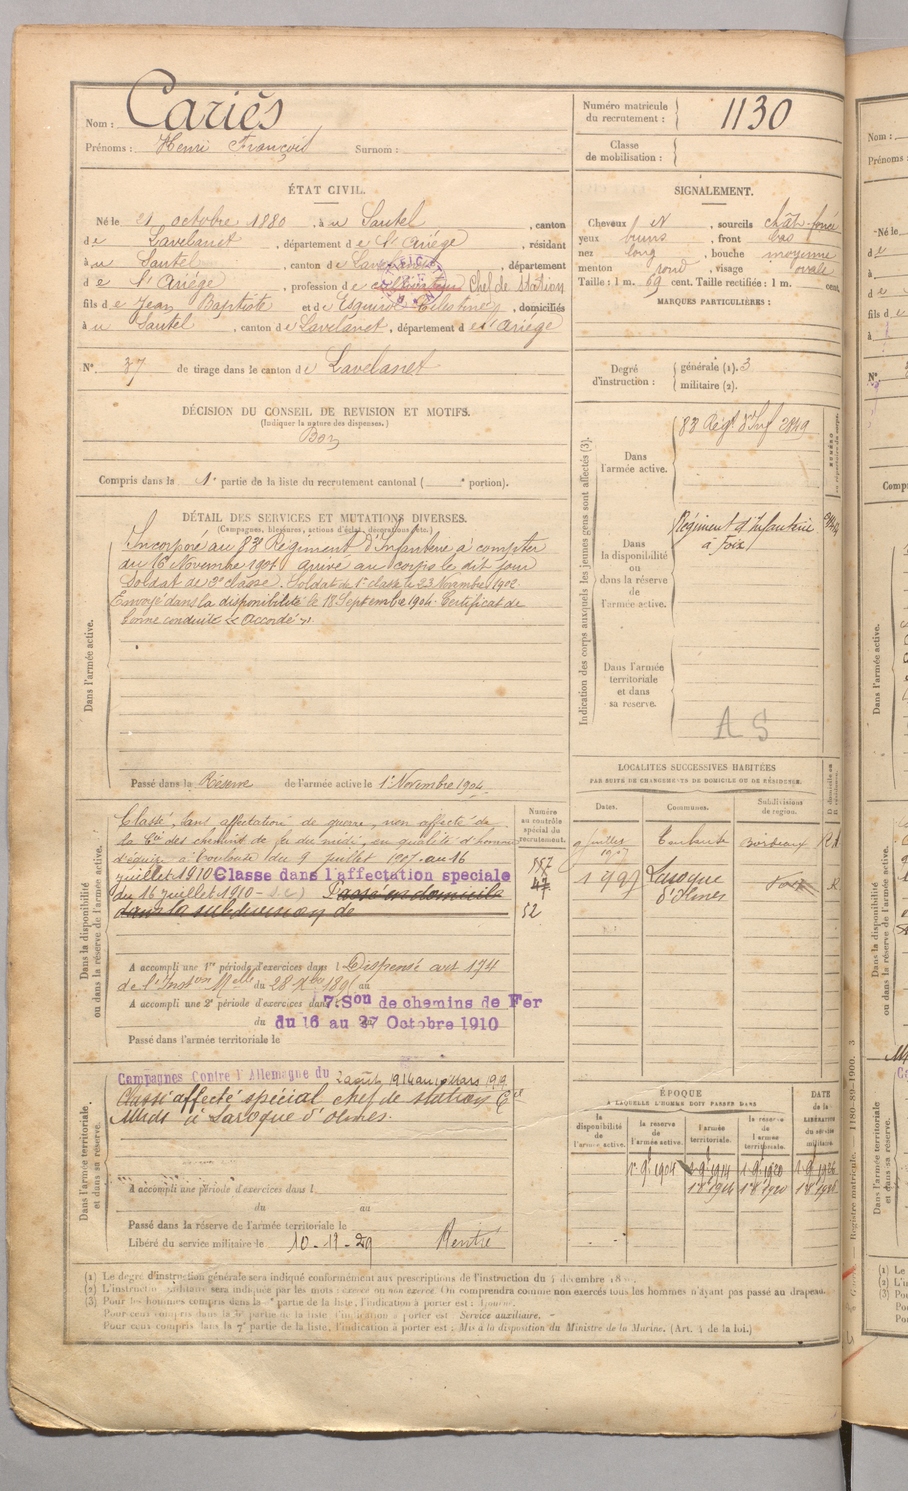 Nom : Cariés
Prénoms : Henri François Surnom :
Numéro matricule du recrutement : 1130
Classe de mobilisation :
ÉTAT CIVIL.
Né le 21 octobre 1880, à u Sautel, canton
de Lavelanet, département de l'Ariége, résidant
à u Sautel, canton de Lavelanet, département
de l'Ariége, profession de cultivateur Chef de Station
fils de Jean Baptiste et de Esquirol Célestine, domiciliés
à u Sautel, canton de Lavelanet, département de l'Ariége
SIGNALEMENT.
Cheveux et, sourcils chât-foncé
yeux bruns, front bas
nez long, bouche moyenne
menton rond, visage ovale
Taille : 1 m. 69 cent. Taille rectifiée : 1 m. cent.
MARQUES PARTICULIÈRES :
N° 37 de tirage dans le canton de Lavelanet
Degré d'instruction : générale (1). 3
militaire (2).
DÉCISION DU CONSEIL DE REVISION ET MOTIFS.
(Indiquer la nature des dispenses.)
Bon
Compris dans la 1e partie de la liste du recrutement cantonal ( e portion).
DÉTAIL DES SERVICES ET MUTATIONS DIVERSES.
(Campagnes, blessures, actions d'éclat, décorations, etc.)
Dans l'armée active.
Incorporé au 83e Régiment d'Infanterie à compter
du 16 Novembre 1901 arrivé au corps le dit jour
Soldat de 2e classe. Soldat de 1e classe le 23 Novembre 1902.
Envoyé dans la disponibilité le 18 Septembre 1904. Certificat de
bonne conduite "Accordé".
Passé dans la Réserve de l'armée active le 1er Novembre 1904.
Indication des corps auxquels les jeunes gens sont affectés (3).
Dans l'armée active.
83e Régt d'Inf 2849
Dans la disponibilité ou dans la réserve de l'armée active.
Régiment d'Infanterie
à Foix
Dans l'armée territoriale et dans sa réserve.
A S
LOCALITÉS SUCCESSIVES HABITÉES
PAR SUITE DE CHANGEMENTS DE DOMICILE OU DE RÉSIDENCE.
Dates. Communes. Subdivisions de région.
9 juillet 1907 Toulouse Bordeaux R
1927 Laroque d'Olmes Foix R
Dans la disponibilité ou dans la réserve de l'armée active.
Numéro au contrôle spécial du recrutement.
Classé, dans affectation de guerre, non affecté de
la Cie des chemins de fer du midi, en qualité d'homme
d'équipe à Toulouse du 9 juillet 1907 au 16
juillet 1910 Classe dans l'affectation speciale
du 16 juillet 1910 Passé en domicile
dans la subdivision de
557
47
52
A accompli une 1re période d'exercices dans l Dispensé art 174
de l'Inston Melle du 28 Xbre 189 au
A accompli une 2e période d'exercices dans l 7e Son de chemins de Fer
du 16 au 27 Octobre 1910
Passé dans l'armée territoriale le
Dans l'armée territoriale et dans sa réserve.
Campagnes Contre l'Allemagne du 2 août 1914 au Mars 1919
Classé affecté spécial chef de station Cie
Midi à Laroque d'Olmes.
A accompli une période d'exercices dans l
du au
Passé dans la réserve de l'armée territoriale le
Libéré du service militaire le 10-11-29 Rentré
ÉPOQUE
A LAQUELLE L'HOMME DOIT PASSER DANS
la disponibilité de l'armée active.
la réserve de l'armée active.
l'armée territoriale.
la réserve de l'armée territoriale.
DATE de la LIBÉRATION du service militaire.
1er 9bre 1904 1er 9bre 1914 1er 9bre 1920 1er 9bre 1926
(1) Le degré d'instruction générale sera indiqué conformément aux prescriptions de l'instruction du 4 décembre 18
(2) L'instruction militaire sera indiquée par les mots : exercé ou non exercé. On comprendra comme non exercés tous les hommes n'ayant pas passé au drapeau.
(3) Pour les hommes compris dans la partie de la liste, l'indication à porter est :
Pour ceux compris dans la partie de la liste l'indication à porter est : Service auxiliaire.
Pour ceux compris dans la 7e partie de la liste, l'indication à porter est : Mis à la disposition du Ministre de la Marine. (Art. 4 de la loi.)